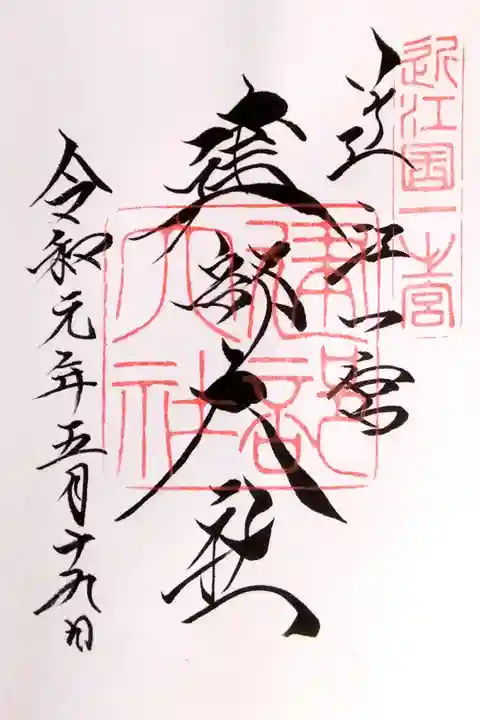 近江国一之宮
近江一宮
建部大社
建部
大社
令和元年五月十九日